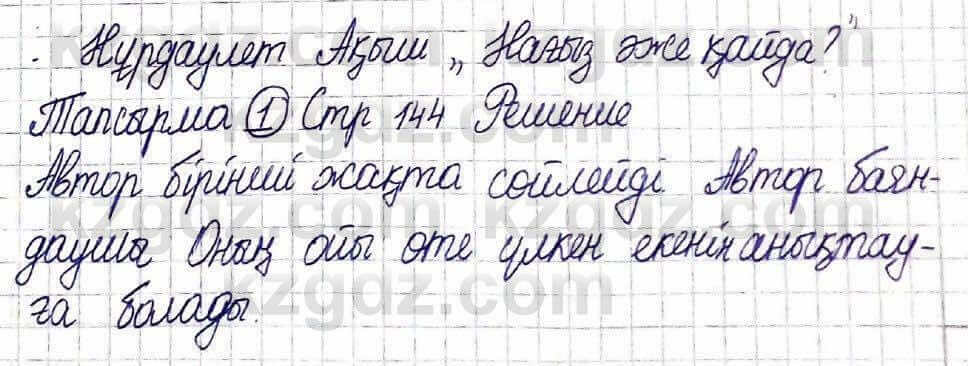 . Нұрдаулет Ақыш „Нағыз әже қайда?"
Тапсырма ① Стр 144 Решение
Автор бірінші жақта сөйлейді Автор баян-
даушы Оның ойы өте үлкен екенін анықтау-
ға болады.
kzgdz.com kzgdz.com
kzgdz.com kzgdz.com
kzgdz.com kzgdz.com